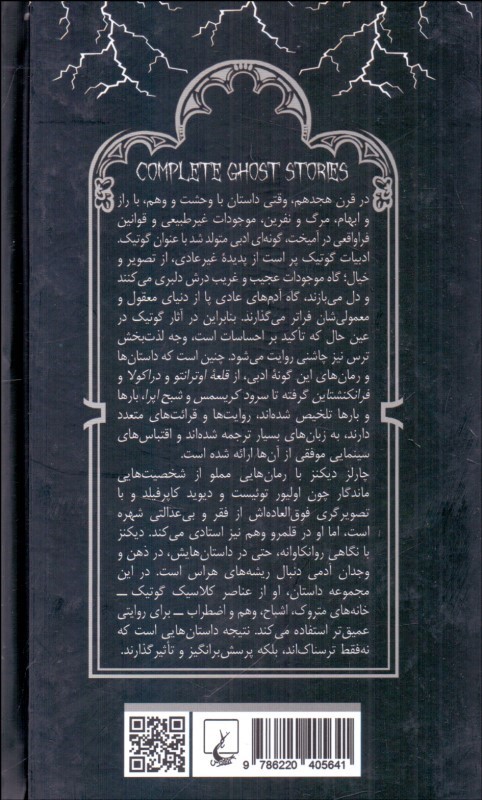 COMPLETE GHOST STORIES
در قرن هجدهم، وقتی داستان با وحشت و وهم، با راز
و ابهام، مرگ و نفرین، موجودات غیرطبیعی و قوانین
فراواقعی در آمیخت، گونه‌ای ادبی متولد شد با عنوان گوتیک.
ادبیات گوتیک پر است از پدیدهٔ غیرعادی، از تصویر و
خیال؛ گاه موجودات عجیب و غریب درش دلبری می‌کنند
و دل می‌بازند، گاه آدم‌های عادی پا از دنیای معقول و
معمولی‌شان فراتر می‌گذارند. بنابراین در آثار گوتیک در
عین حال که تأکید بر احساسات است، وجه لذت‌بخش
ترس نیز چاشنی روایت می‌شود. چنین است که داستان‌ها
و رمان‌های این گونهٔ ادبی، از قلعهٔ اوترانتو و دراکولا و
فرانکنشتاین گرفته تا سرود کریسمس و شبح اپرا، بارها
و بارها تلخیص شده‌اند، روایت‌ها و قرائت‌های متعدد
دارند، به زبان‌های بسیار ترجمه شده‌اند و اقتباس‌های
سینمایی موفقی از آن‌ها ارائه شده است.
چارلز دیکنز با رمان‌هایی مملو از شخصیت‌هایی
ماندگار چون اولیور توئیست و دیوید کاپرفیلد و با
تصویرگری فوق‌العاده‌اش از فقر و بی‌عدالتی شهره
است، اما او در قلمرو وهم نیز استادی می‌کند. دیکنز
با نگاهی روانکاوانه، حتی در داستان‌هایش، در ذهن و
وجدان آدمی دنبال ریشه‌های هراس است. در این
مجموعه داستان، او از عناصر کلاسیک گوتیک ــ
خانه‌های متروک، اشباح، وهم و اضطراب ــ برای روایتی
عمیق‌تر استفاده می‌کند. نتیجه داستان‌هایی است که
نه‌فقط ترسناک‌اند، بلکه پرسش‌برانگیز و تأثیرگذارند.
ققنوس
9 786220 405641